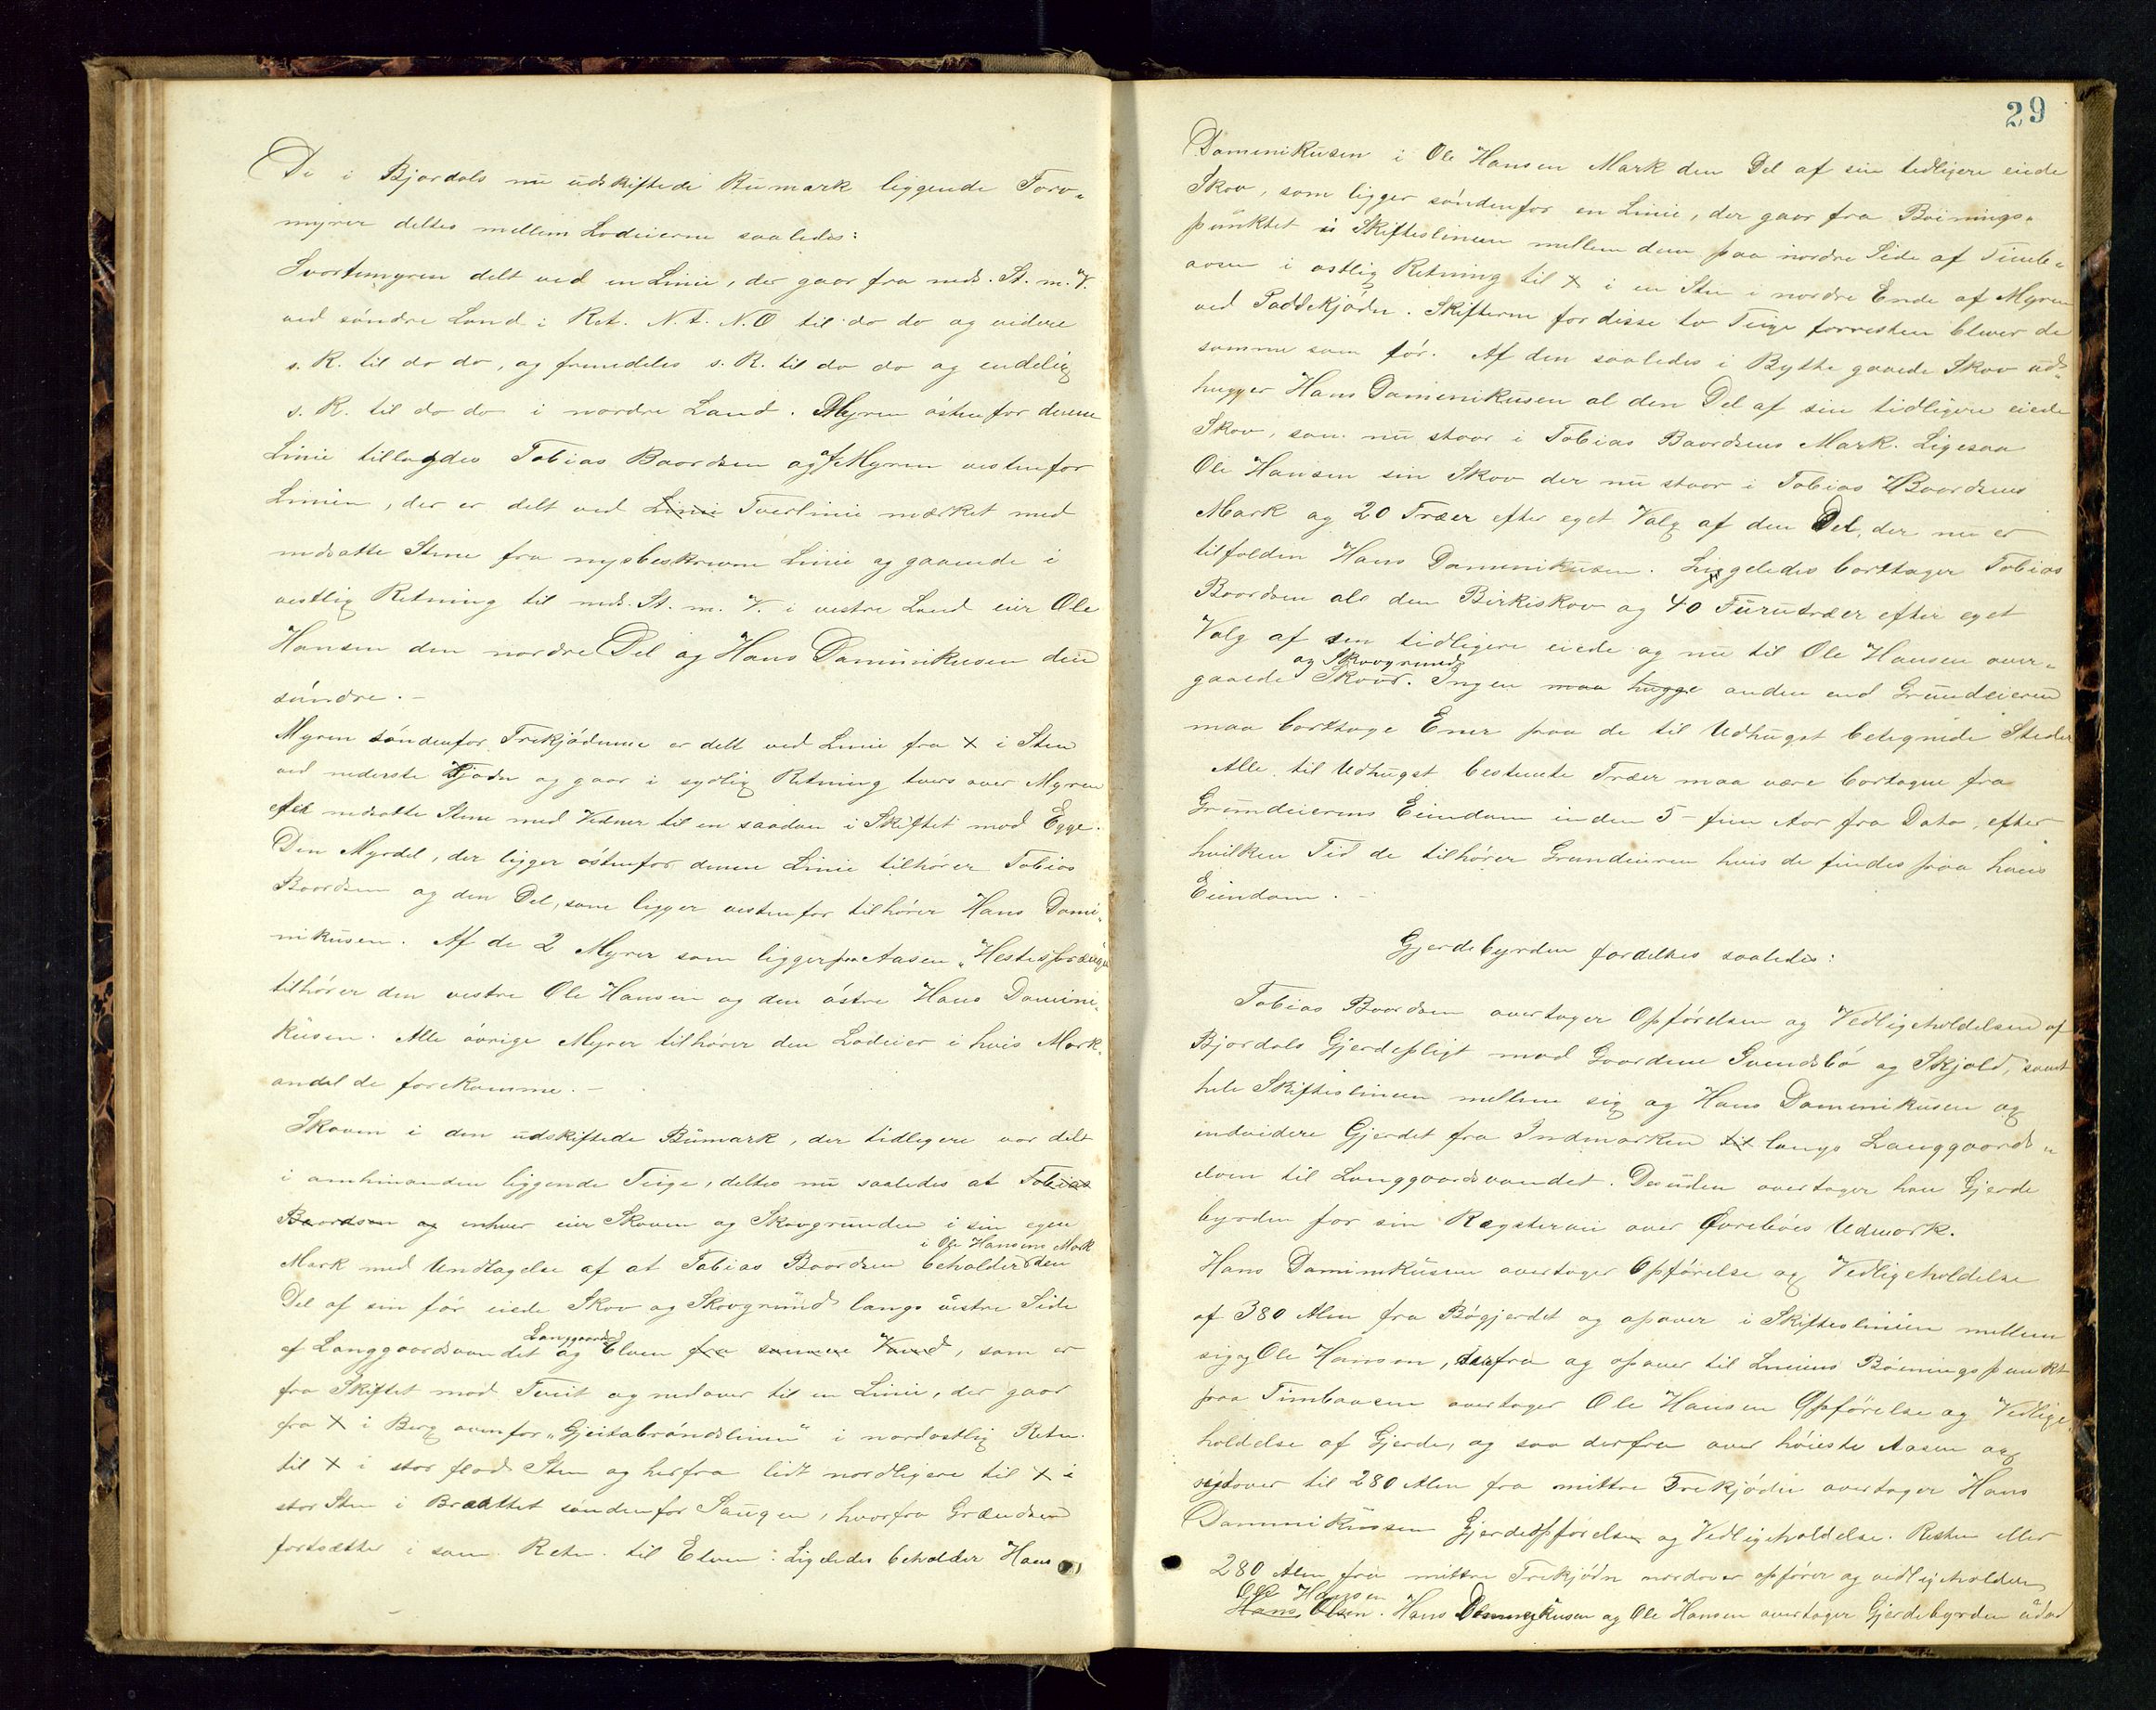 De i Bjordals nu udskiftede Bumark liggende Torv„
myrer deltes mellem Lodeierne saaledes:
Svortemyren delt ved en Linie, der gaar fra neds. St. m. V.
ved søndre Land i Ret. N. t. N.O til do do og videre
s. R. til do do, og fremdeles s. R. til do do og endelig
s. R. til do do i nordre Land. Myren østenfor denne
Linie tillagdes Tobias Baardsen og af Myren vestenfor
Linien, der er delt ved Linie Tverlinie mærket med
nedsatte Stene fra nysbeskrevne Linie og gaaende i
vestlig Retning til neds. St. m. V. i vestre Land eier Ole
Hansen den nordre Del og Hans Daminikusen den
søndre. –
Myren søndenfor Trekjødnene er delt ved Linie fra X i Sten
ved nederste Tjødn og gaar i sydlig Retning tvers over Myren
efter nedsatte Stene med Vidner til en saadan i Skiftet mod Egge.
Den Myrdel, der ligger østenfor denne Linie tilhører Tobias
Baardsen og den Del, som ligger vestenfor tilhører Hans Dami„
nikusen. Af de 2 Myrer som ligger paa Aasen „Hestesprænget
tilhører den vestre Ole Hansen og den østre Hans Domini„
kusen. Alle øvrige Myrer tilhører den Lodeier i hvis Mark„
andel de forekomme. –
Skoven i den udskiftede Bumark, der tidligere var delt
i omhinanden liggende Teige, deltes nu saaledes at Tobias
Baardsen og enhver eier Skoven og Skovgrunden i sin egen
i Ole Hansens Mark
Mark med Undtagelse af at Tobias Baardsen beholder den
Del af sin før eiede Skov og Skovgrund langs østre Side
Langgaards
af Langgaardsvandet og Elven fra samme Vand, som er
fra Skiftet mod Tveit og nedover til en Linie, der gaar
fra X i Berg ovenfor „Gjeitabrøndslinen" i nordostlig Retn.
til X i stor flad Sten og herfra lidt nordligere til X i
stor Sten i Braattet søndenfor Saugen, hvorfra Grændsen
fortsætter i sam. Retn. til Elven. Ligeledes beholder Hans
29
Daminikusen i Ole Hansen Mark den Del af sin tidligere eiede
Skov, som ligger søndenfor en Linie, der gaar fra Bøinings„
punktet i Skifteslinien mellem dem paa nordre Side af Timb„
aasen i ostlig Retning til X i en Sten i nordre Ende af Myren
ved Paddekjødn. Skifterne for disse to Teige forresten bliver de
samme som før. Af den saaledes i Bytte gaaede Skov ud„
hugger Hans Daminikusen al den Del af sin tidligere eiede
Skov, som nu staar i Tobias Baardsens Mark. Ligesaa
Ole Hansen sin Skov der nu staar i Tobias Baardsens
Mark og 20 Træer efter eget Valg af den Del, der nu er
tilfalden Hans Daminikusen. Liggeledes borttager Tobias
Baardsen als den Birkiskov og 40 Furutræer efter eget
Valg af sen tidligere eiede og nu til Ole Hansen over„
og Skovgrund
gaaede Skov. Ingen maa hugge anden end Grundeieren
maa borttage Ener paa de til Udhugst betegnede Steder
Alle til Udhugst bestemte Træer maa være bortagne fra
Grundeierens Eiendom inden 5 – fem Aar fra Dato, efter
hvilken Tid de tilhører Grundeieren hvis de findes paa hans
Eiendom. –
Gjerdebyrden fordeltes saaledes:
Tobias Baardsen overtager Opførelsen og Vedligeholdelsen af
Bjordals Gjerdepligt mod Gaardene Svendsbø og Skjold, samt
hele Skifteslinien mellem sig og Hans Daminikusen og
endvidere Gjerdet fra Indmarken til langs Langgaards„
elven til Langgaardsvandet. Desuden overtager han Gjerde
byrden for sin Røgstervei over Øvrebøes Udmark.
Hans Daminikusen overtager Opførelse og Vedligeholdelse
af 380 Alen fra Bøgjerdet og opover i Skifteslinien mellem
sig og Ole Hansen, derfra og opover til Liniens Bøiningspunkt
paa Timbaasen overtager Ole Hansen Opførelse og Vedlige„
holdelse af Gjerde, og saa derfra over høieste Aasen og
sydover til 280 Alen fra mittre Trekjødn overtager Hans
Daminikussen Gjerdeopførelsen og Vedligeholdelse. Resten eller
280 Alen fra mittre Trekjødn nordover opfører og vedligeholder
Ole Hansen
Hans Olsen. Hans Dominikusen og Ole Hansen overtager Gjerdebyrden udad